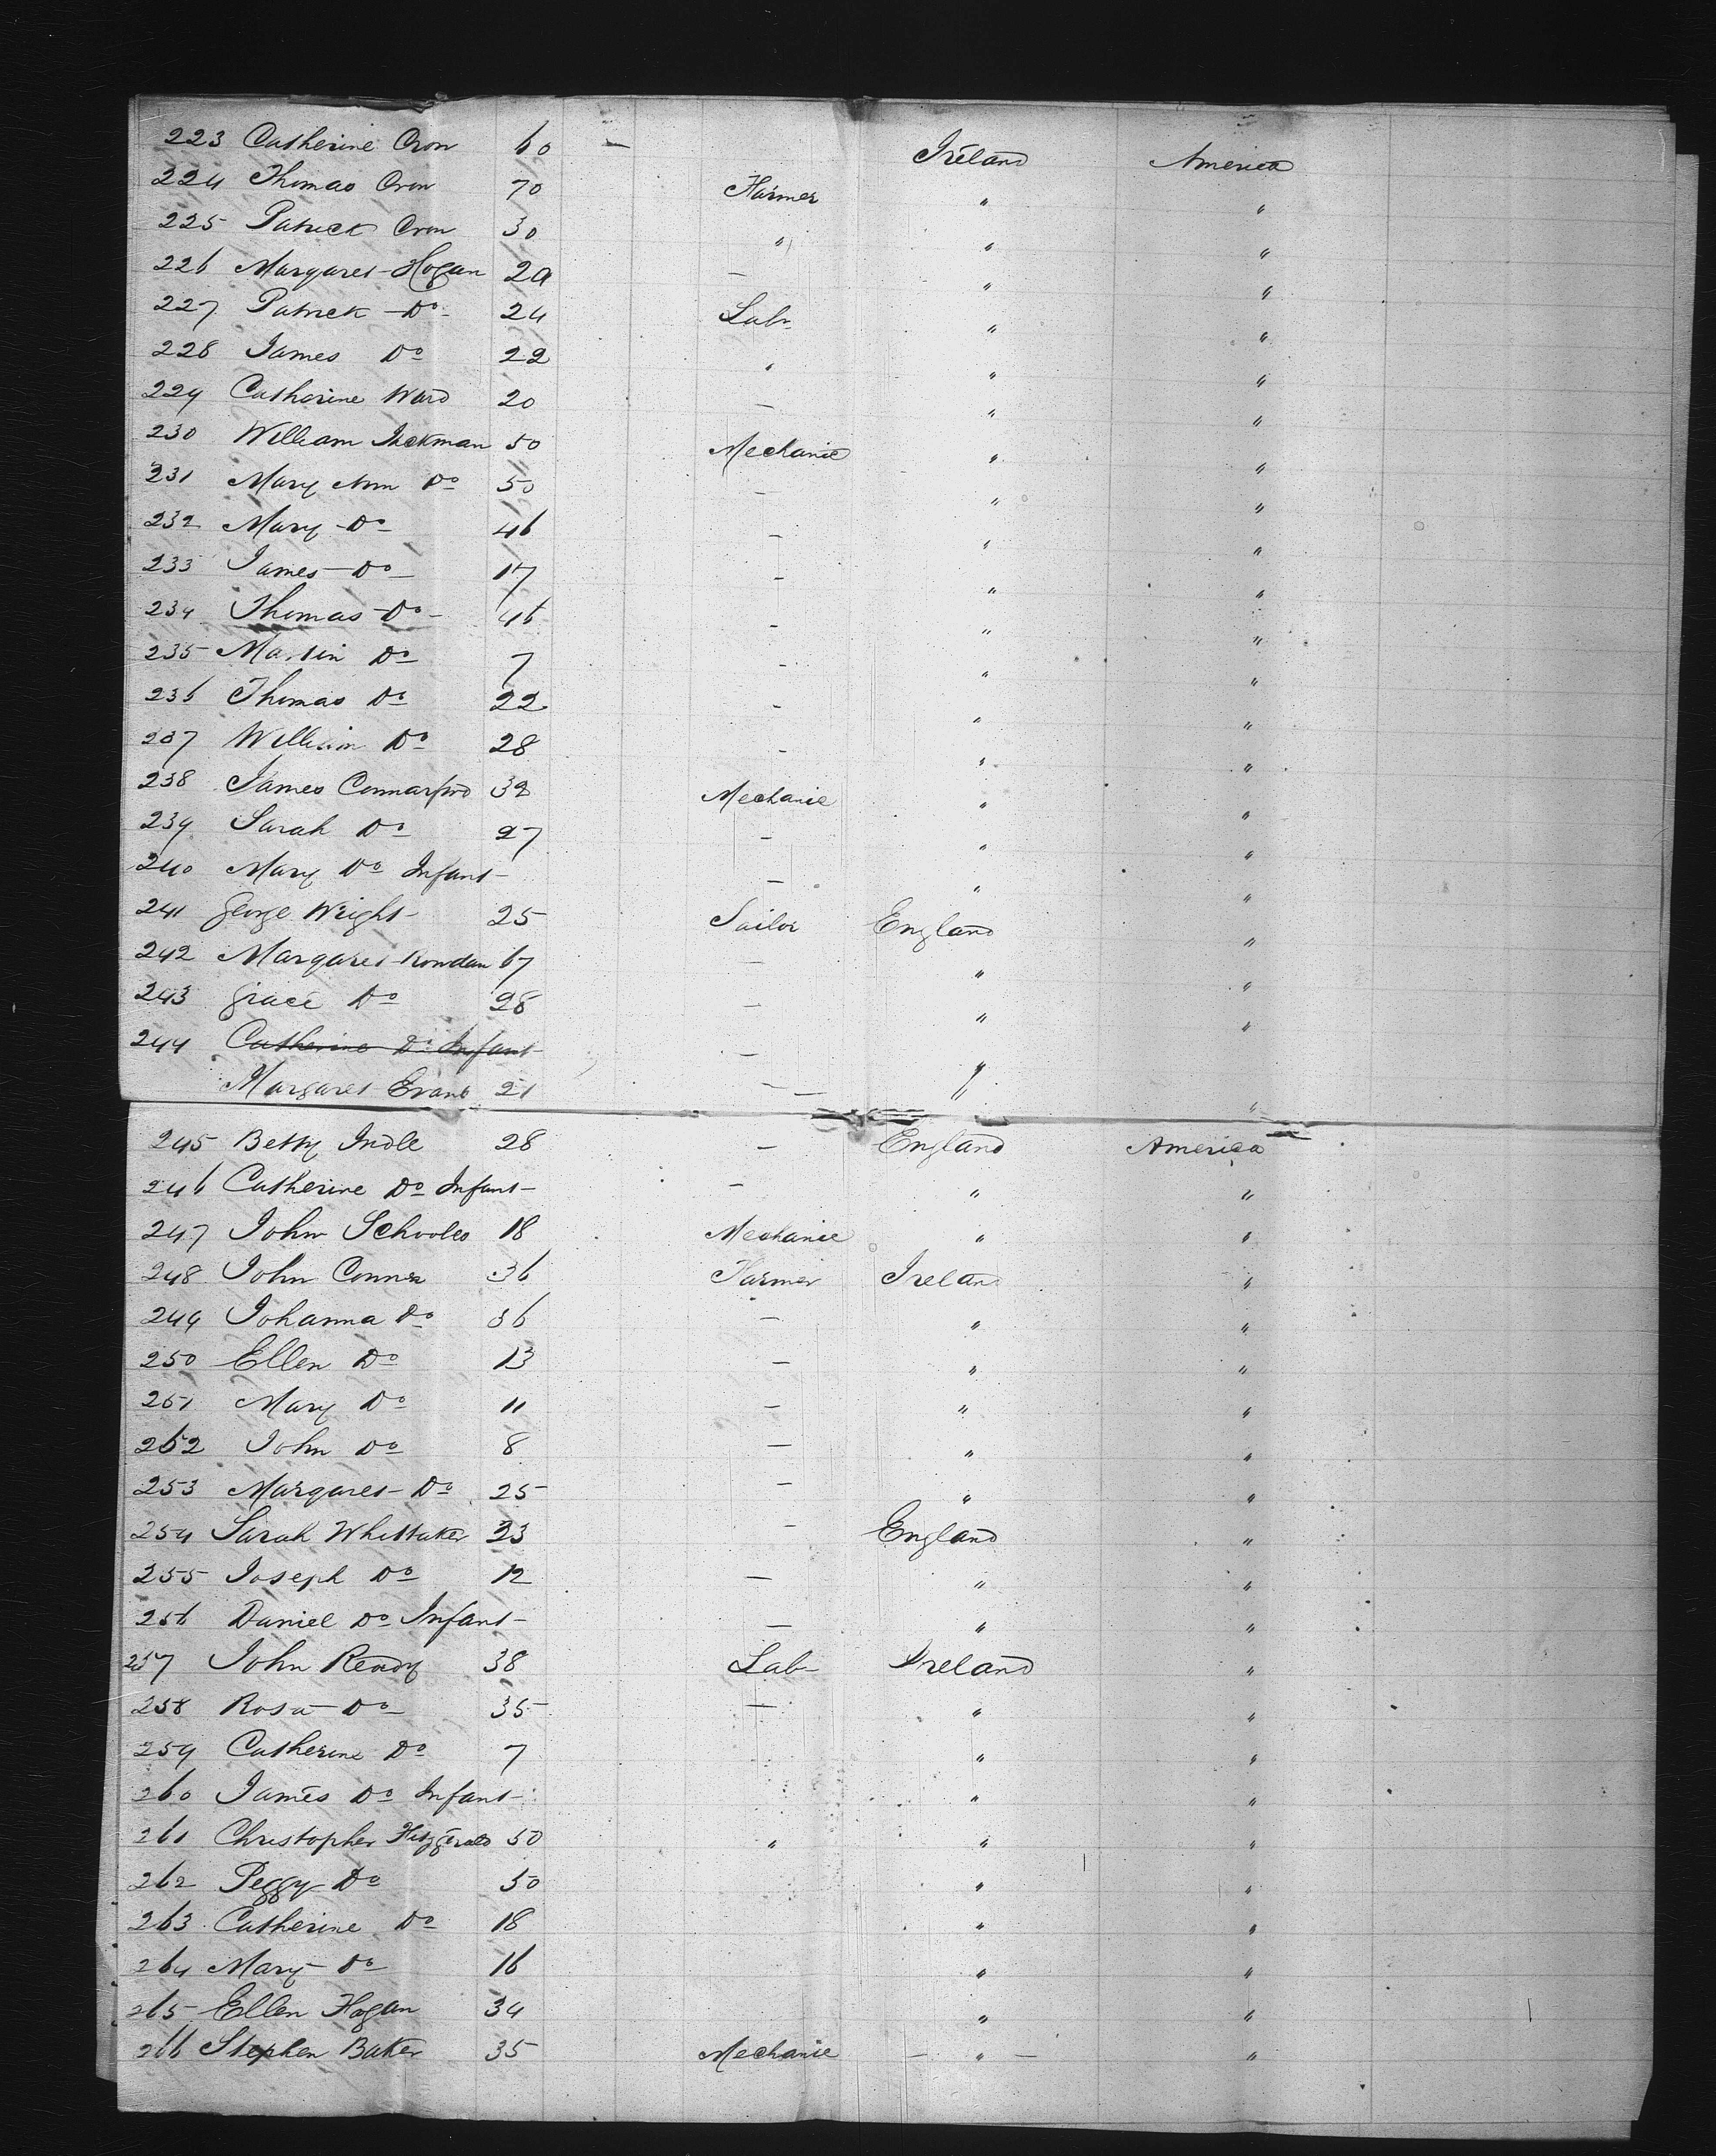 223 Catherine Cron 60 — Ireland America
224 Thomas Cron 70 Farmer " "
225 Patrick Cron 30 " " "
226 Margaret Hogan 20 — " "
227 Patrick Do 24 Labr " "
228 James Do 22 " " "
229 Catherine Ward 20 — " "
230 William Jackman 50 Mechanic " "
231 Mary Ann Do 50 — " "
232 Mary Do 46 — " "
233 James Do 17 — " "
234 Thomas Do 46 — " "
235 Martin Do 7 — " "
236 Thomas Do 22 — " "
237 William Do 28 — " "
238 James 32 Mechanic " "
239 Sarah Do 27 — " "
240 Mary Do Infant — " "
241 George Wright 25 Sailor England "
242 Margaret Rowdan 67 — " "
243 Grace Do 28 — " "
244 Catherine Do Infant — "
Margaret Evans 21 — " "
245 Betty Indle 28 — England America
246 Catherine Do Infant — " "
247 John Schooles 18 Mechanic " "
248 John Conner 36 Farmer Ireland "
249 Johanna Do 36 — " "
250 Ellen Do 13 — " "
251 Mary Do 11 — " "
252 John Do 8 — " "
253 Margaret Do 25 — " "
254 Sarah Whittaker 23 — England "
255 Joseph Do 12 — " "
256 Daniel Do Infant — " "
257 John Ready 38 Labr Ireland "
258 Rosa Do 35 — " "
259 Catherine Do 7 " "
260 James Do Infant " "
261 Christopher Fitzgerald 50 " " "
262 Peggy Do 50 " "
263 Catherine Do 18 " "
264 Mary Do 16 " "
265 Ellen Hogan 34 " "
266 Stephen Baker 35 Mechanic — " — "